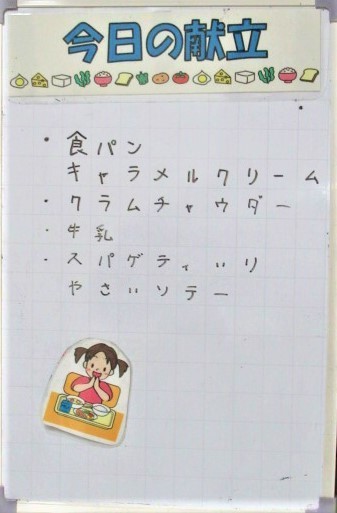 今日の献立
・食パン
キャラメルクリーム
・クラムチャウダー
・牛乳
・スパゲティいり
やさいソテー